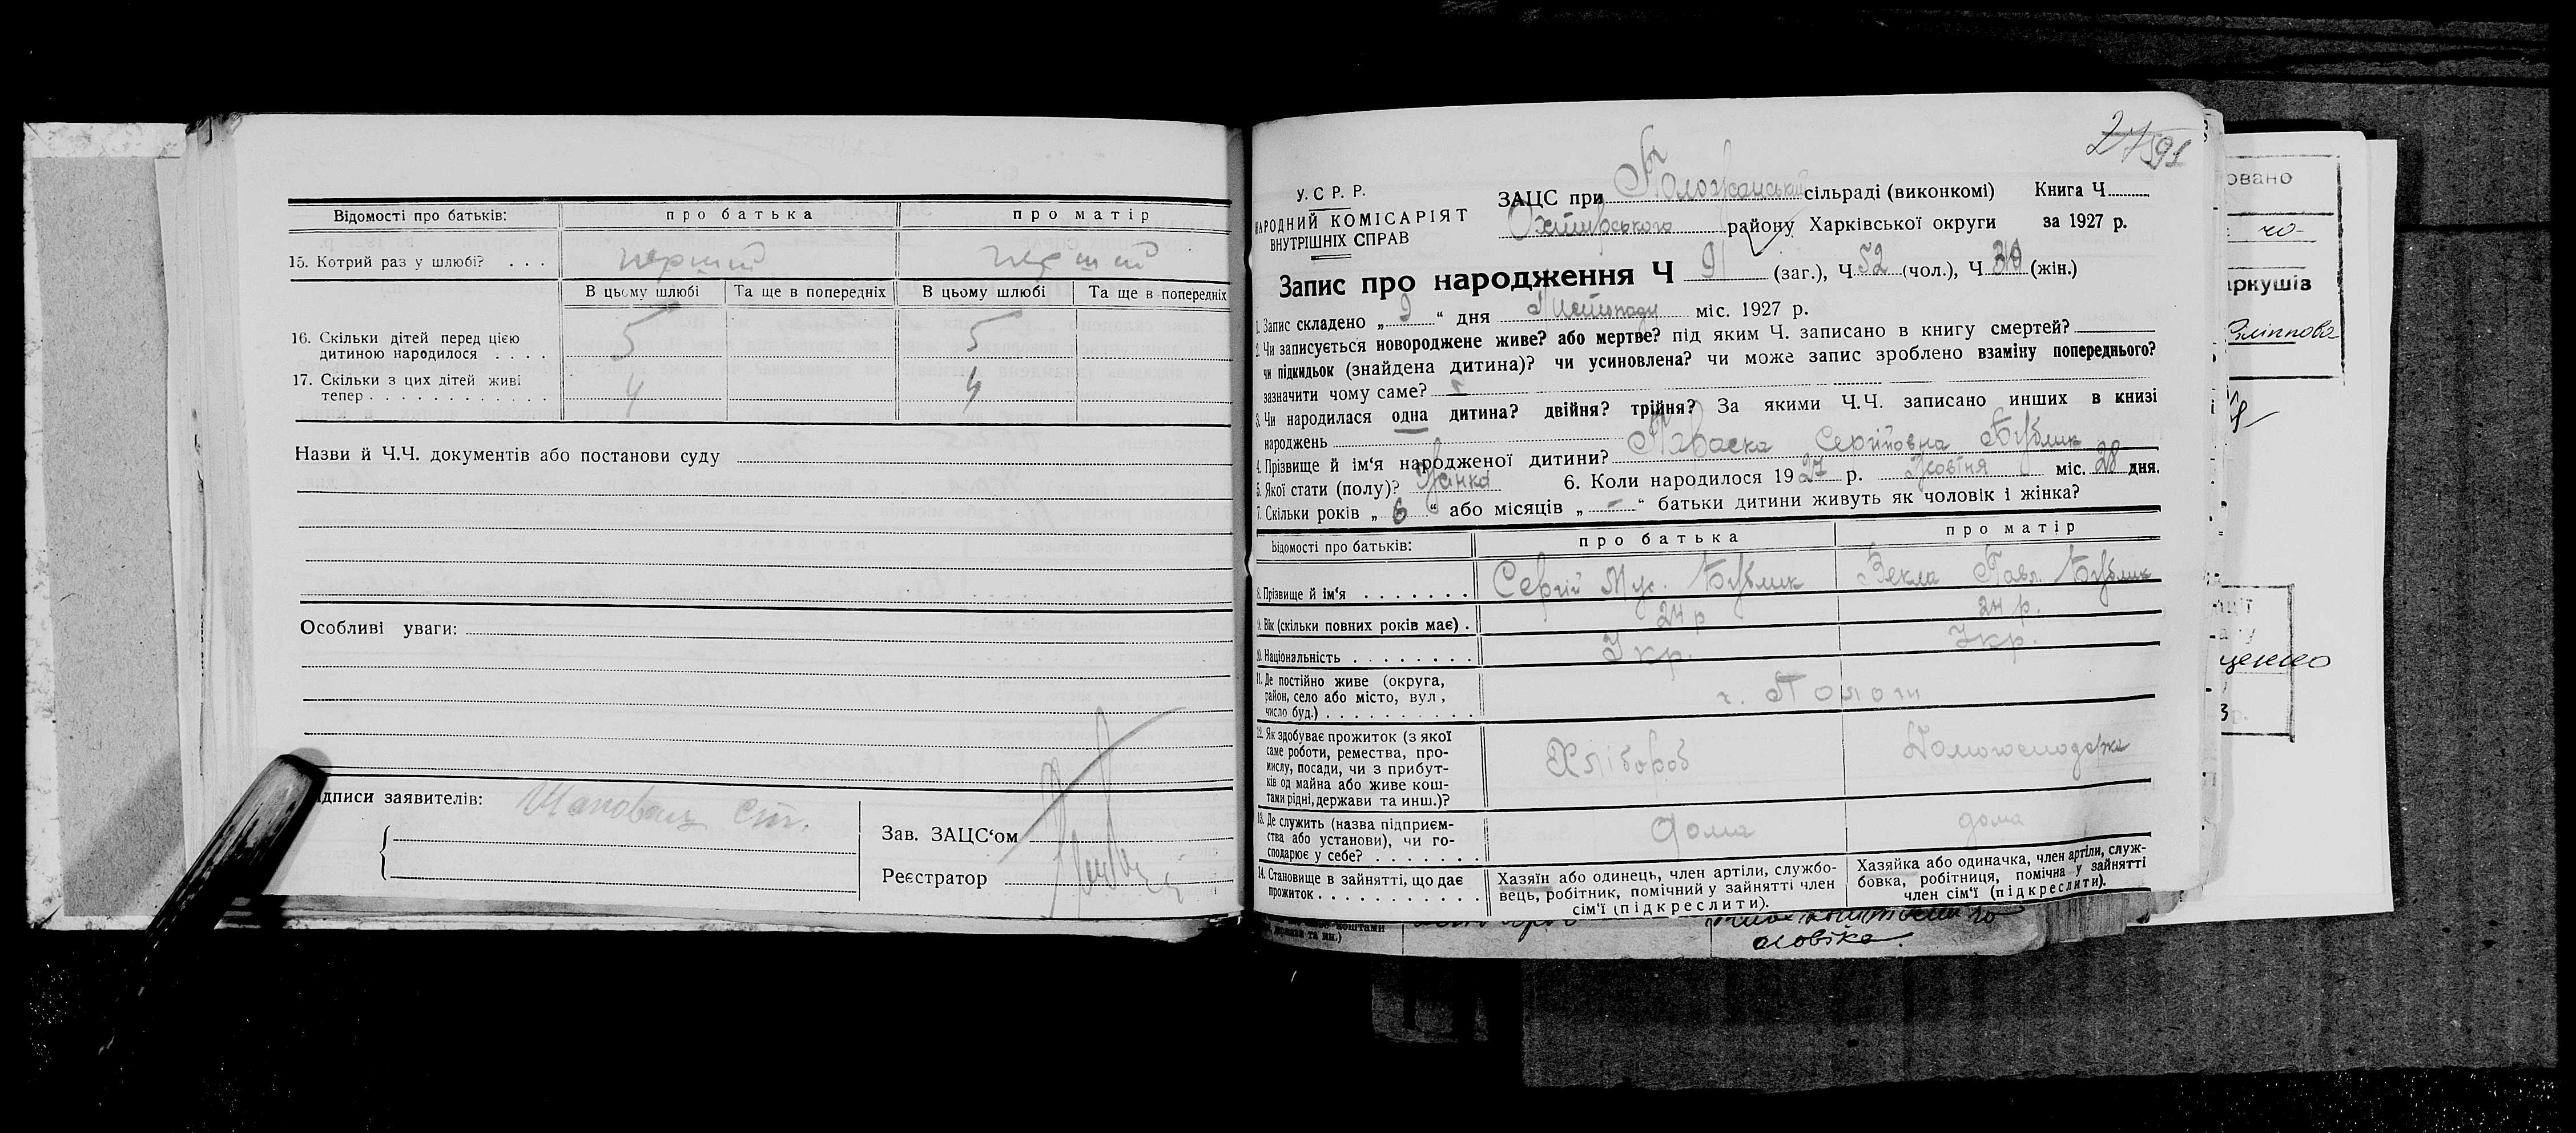 Відомості про батьків: про батька про матір
15. Котрий раз у шлюбі? . . . перший перший
В цьому шлюбі Та ще в попередніх В цьому шлюбі Та ще в попередніх
16. Скільки дітей перед цією
дитиною народилося . . . . 5 5
17. Скільки з цих дітей живі
тепер . . . . . . . . . . . . . 4 4
Назви й Ч.Ч. документів або постанови суду
Особливі уваги:
дписи заявителів:
Зав. ЗАЦС‘ом
Реєстратор
591
У. С Р. Р.
НАРОДНИЙ КОМІСАРІЯТ
ВНУТРІШНІХ СПРАВ
ЗАЦС при Положанській сільраді (виконкомі) Книга Ч
Охтирського району Харківської округи за 1927 р.
Запис про народження Ч 91 (заг.), Ч 52 (чол.), Ч 39 (жін.)
1. Запис складено „ 9 “ дня Листопаду міс. 1927 р.
2. Чи записується новороджене живе? або мертве? під яким Ч. записано в книгу смертей?
чи підкидьок (знайдена дитина)? чи усиновлена? чи може запис зроблено взаміну попереднього?
зазначити чому саме?
3. Чи народилася одна дитина? двійня? трійня? За якими Ч.Ч. записано инших в книзі
народжень
4. Прізвище й ім‘я народженої дитини? Параска Сергіповна Бублик
5. Якої стати (полу)? Жінка 6. Коли народилося 1927 р. Жовтня міс. 28 дня.
7. Скільки років „ 6 “ або місяців „ – “ батьки дитини живуть як чоловік і жінка?
Відомості про батьків: про батька про матір
8. Прізвище й ім‘я . . . . . . . Сергій Мус. Бублик Векла Павл. Бублик
9. Вік (скільки повних років має) . 24 р 24 р.
10. Національність . . . . . . . . Укр. Укр.
11. Де постійно живе (округа,
район, село або місто, вул.,
число буд.) . . . . . . . . . . с. Пологи
12. Як здобуває прожиток (з якої
саме роботи, ремества, про-
мислу, посади, чи з прибут-
ків од майна або живе кош-
тами рідні, держави та инш.)? Хлібороб Домогосподарка
13. Де служить (назва підприєм-
ства або установи), чи го-
сподарює у себе? . . . . . . . Дома дома
14. Становище в зайнятті, що дає
прожиток . . . . . . . . . . . .
Хазяїн або одинець, член артіли, службо-
вець, робітник, помічний у зайнятті член
сім‘ї (підкреслити).
Хазяйка або одиначка, член артіли, служ-
бовка, робітниця, помічна у зайнятті
член сім‘ї (підкреслити).
коштами
держави та ин.)
овано
аркушів
Філіппова